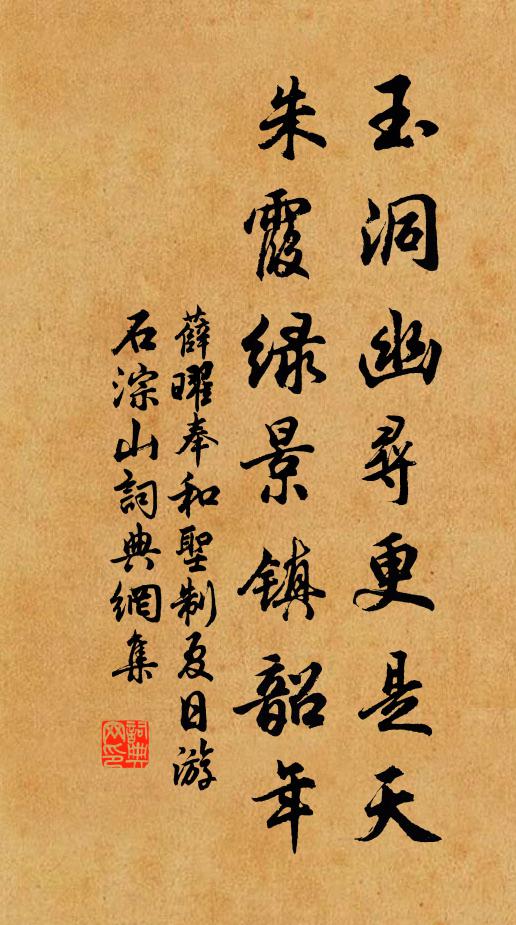 玉洞幽尋更是天
朱霞绿景镇韶年
薛曜奉和聖制夏日游
石淙山詞典網集
詞典網印